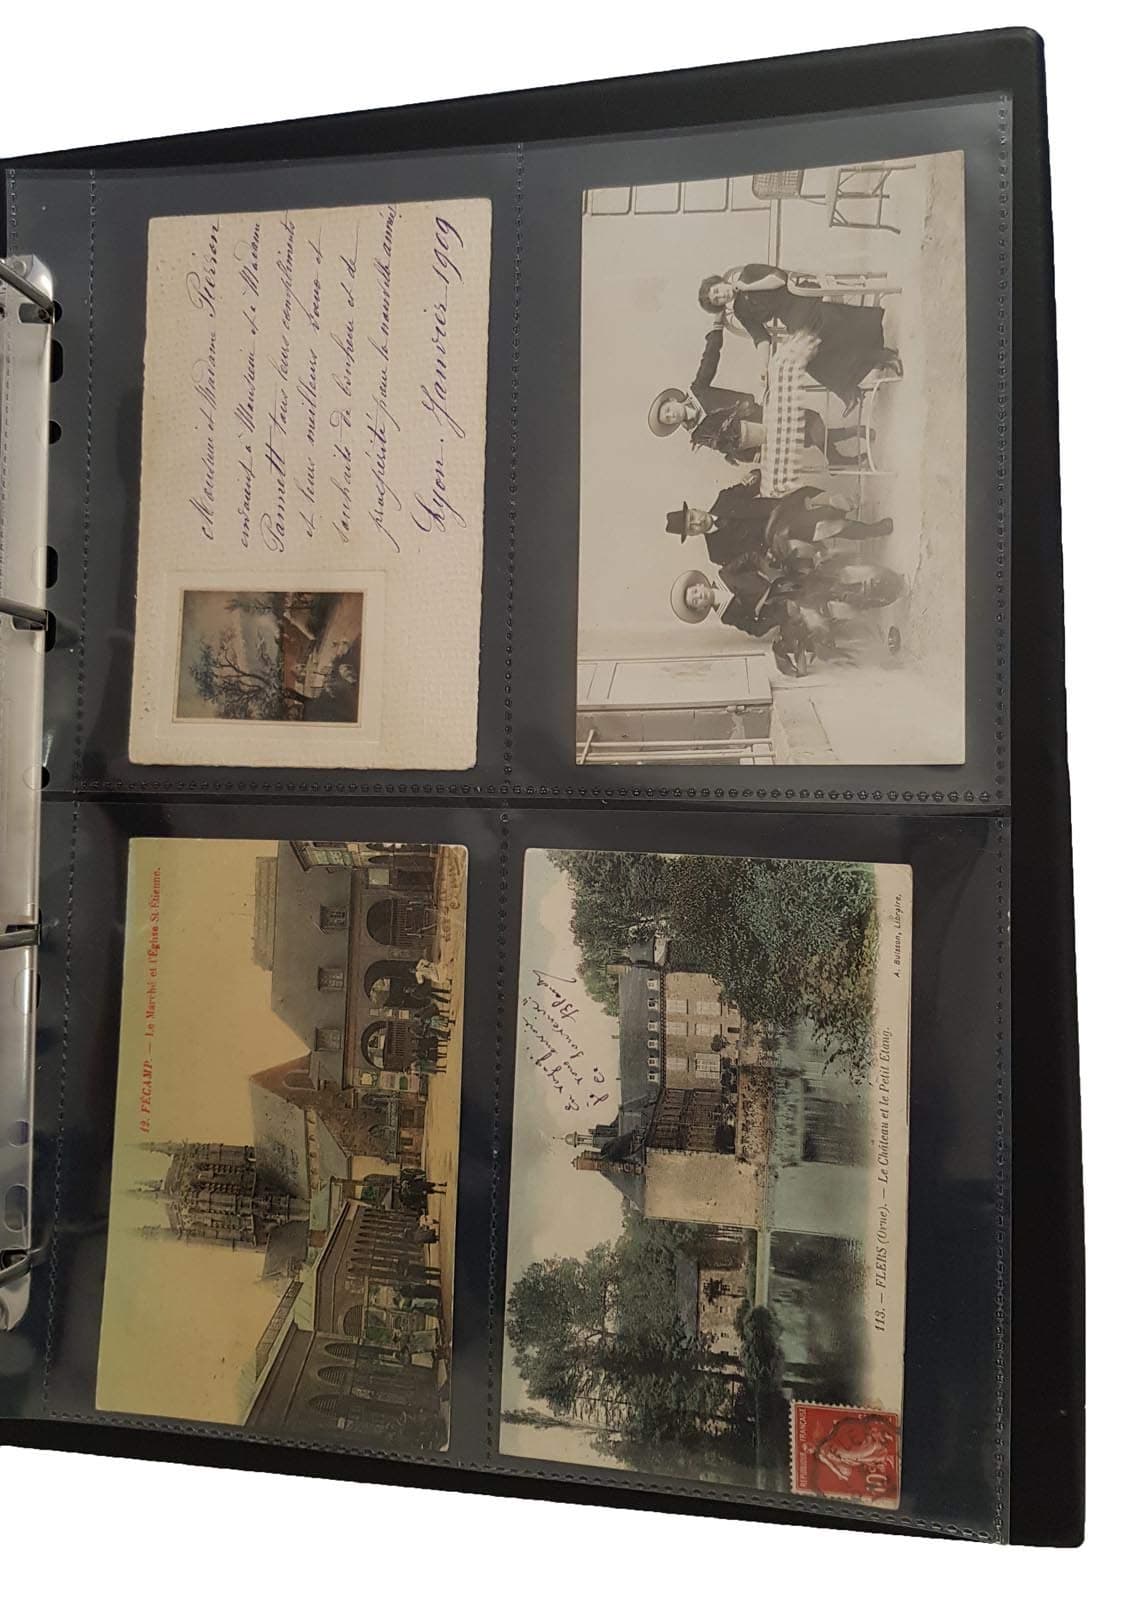 Monsieur et Madame Pierron
envoient à Monsieur et à Madame
tous leurs compliments
et leurs meilleurs vœux et
souhaits de bonheur et de
prospérité pour la nouvelle année
Lyon. Janvier 1909
12. FÉCAMP. — Le Marché et l'Église St-Etienne.
Souvenir
Blanch
A. Buisson, Libraire.
113. — FLERS (Orne). — Le Château et le Petit Etang.
REPUBLIQUE FRANÇAISE
10